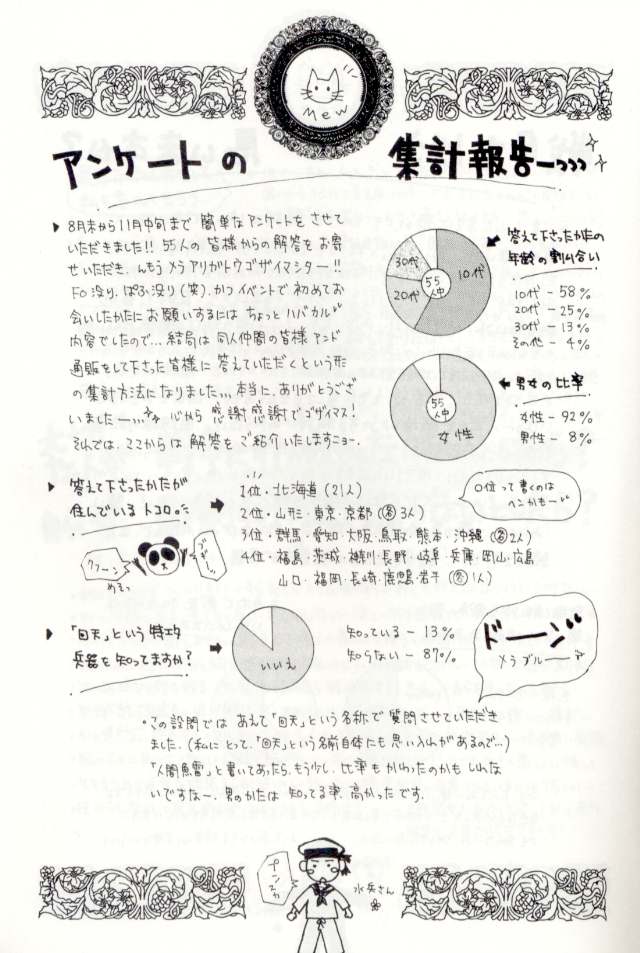 Mew
アンケートの 集計報告ーっっっ
▶ 8月末から11月中旬まで 簡単なアンケートを させて
いただきました!! 55人の 皆様からの解答を お寄
せいただき、んもう メラ アリガトウゴザイマシター!!
FO没り、ぱふ没り(笑)、かつ イベントで 初めてお
会いしたかたに お願いするには ちょっと ハバカル
内容でしたので… 結局は 同人仲間の皆様 アンド
通販をして下さった 皆様に 答えていただく という形
の 集計方法に なりました,,, 本当に、ありがとうござ
いましたー,,, 心から 感謝感謝で ゴザイマス!
それでは、ここからは 解答を ご紹介いたしますニョー.
30代
10代
20代
55人中
答えて下さったかたの
年齢の割り合い
10代 - 58%
20代 - 25%
30代 - 13%
その他 - 4%
55人中
女性
男女の比率
女性 - 92%
男性 - 8%
▶ 答えて下さったかたが
住んでいる トコロ。
1位・北海道 (21人)
2位・山形・東京・京都 (各3人)
3位・群馬・愛知・大阪・鳥取・熊本・沖縄 (各2人)
4位・福島・茨城・神奈川・長野・岐阜・兵庫・岡山・広島
山口・福岡・長崎・鹿児島・岩手 (各1人)
〇位って書くのは
ヘンかもー
▶ 「回天」という 特攻
兵器を 知ってますか?
いいえ
知っている - 13%
知らない - 87%
ドーン
メラブルー
・この設問では あえて「回天」という名称で 質問させていただき
ました.(私にとって、「回天」という名前自体にも思い入れがあるので…)
「人間魚雷」と書いてあったら、もう少し、比率もかわったのかもしれな
いですなー. 男のかたは 知ってる率 高かったです.
プンスカ
水兵さん